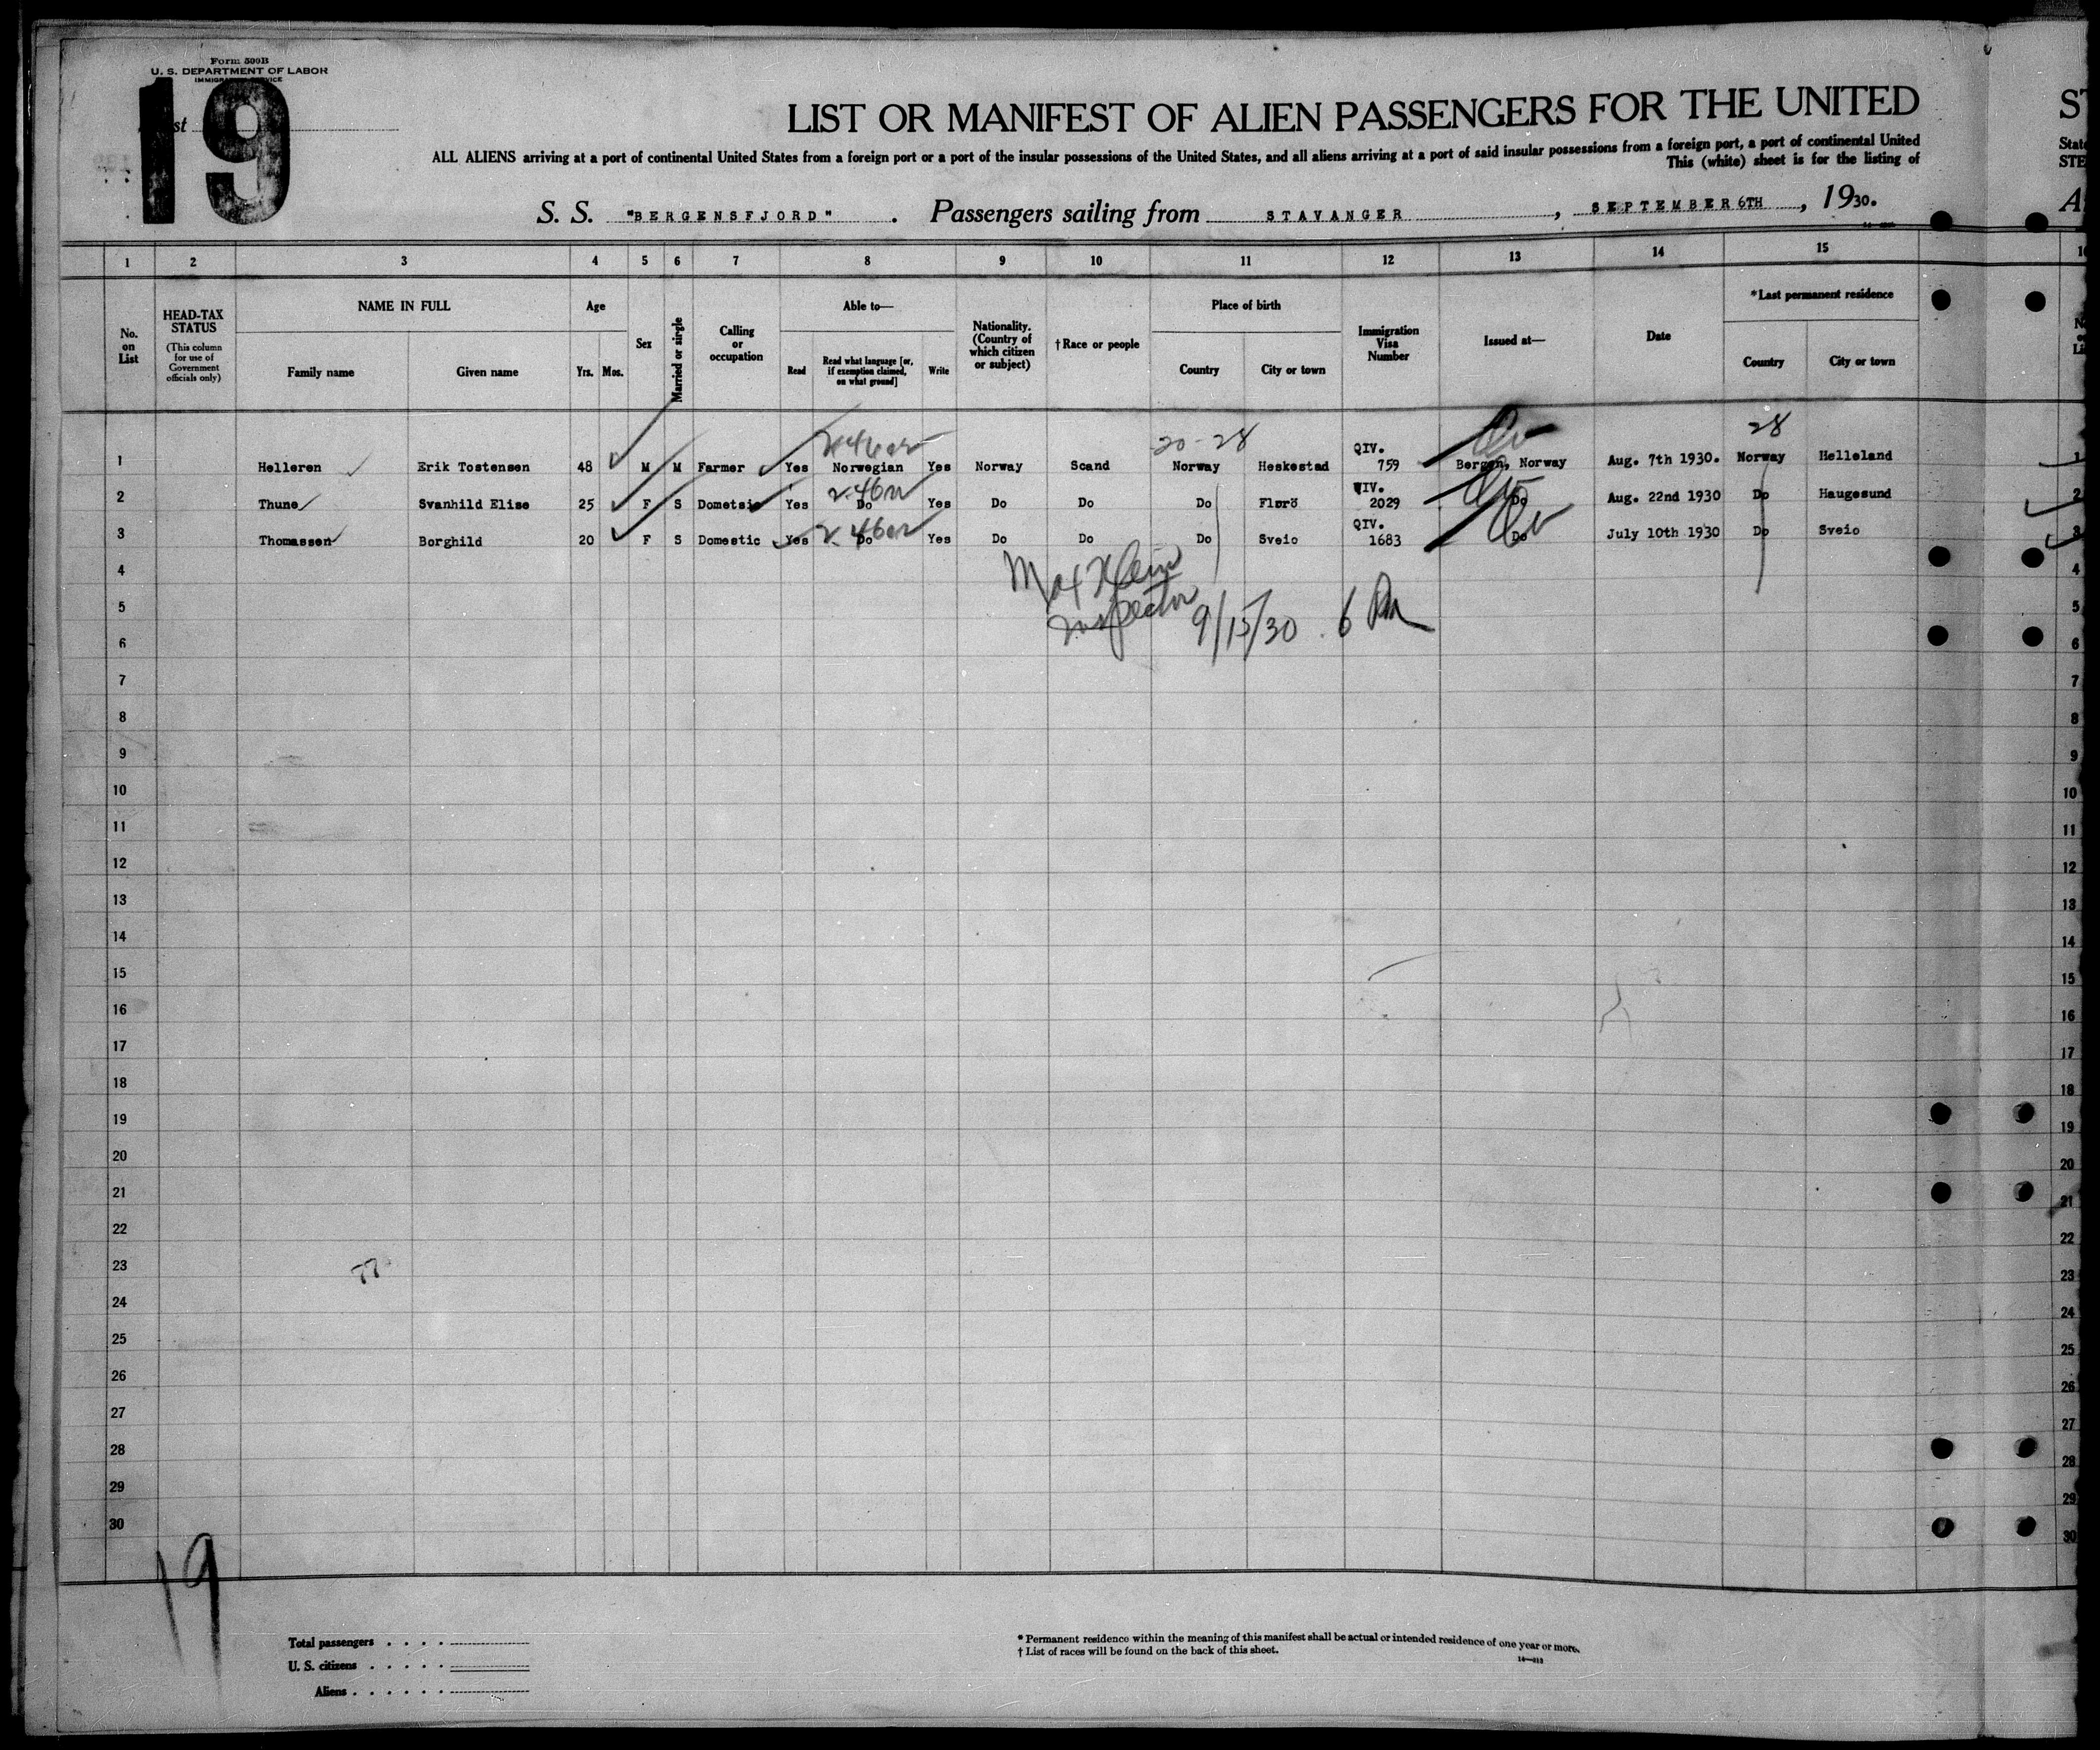 Form 500B
U. S. DEPARTMENT OF LABOR
IMMIGRATION SERVICE
19
LIST OR MANIFEST OF ALIEN PASSENGERS FOR THE UNITED
ALL ALIENS arriving at a port of continental United States from a foreign port or a port of the insular possessions of the United States, and all aliens arriving at a port of said insular possessions from a foreign port, a port of continental United
This (white) sheet is for the listing of
S. S. "BERGENSFJORD". Passengers sailing from STAVANGER, SEPTEMBER 6TH, 1930.
ST
State
STE
1 2 3 4 5 6 7 8 9 10 11 12 13 14 15
No. on List
HEAD-TAX STATUS
(This column for use of Government officials only)
NAME IN FULL
Family name Given name
Age
Yrs. Mos.
Sex
Married or single
Calling or occupation
Able to—
Read Read what language [or, if exemption claimed, on what ground] Write
Nationality. (Country of which citizen or subject)
†Race or people
Place of birth
Country City or town
Immigration Visa Number
Issued at—
Date
*Last permanent residence
Country City or town
20-28 28
1 Helleren Erik Tostensen 48 M M Farmer Yes Norwegian Yes Norway Scand Norway Heskestad QIV. 759 Bergen, Norway Aug. 7th 1930. Norway Helleland 1
2 Thune Svanhild Elise 25 F S Dometsic Yes Do Yes Do Do Do Florö QIV. 2029 Do Aug. 22nd 1930 Do Haugesund 2
3 Thomassen Borghild 20 F S Domestic Yes Do Yes Do Do Do Sveio QIV. 1683 Do July 10th 1930 Do Sveio 3
Max Klein
Inspector 9/15/30 . 6 Pm
4 4
5 5
6 6
7 7
8 8
9 9
10 10
11 11
12 12
13 13
14 14
15 15
16 16
17 17
18 18
19 19
20 20
21 21
22 22
23 77 23
24 24
25 25
26 26
27 27
28 28
29 29
30 30
19
Total passengers
U. S. citizens
Aliens
* Permanent residence within the meaning of this manifest shall be actual or intended residence of one year or more.
† List of races will be found on the back of this sheet.
14—213